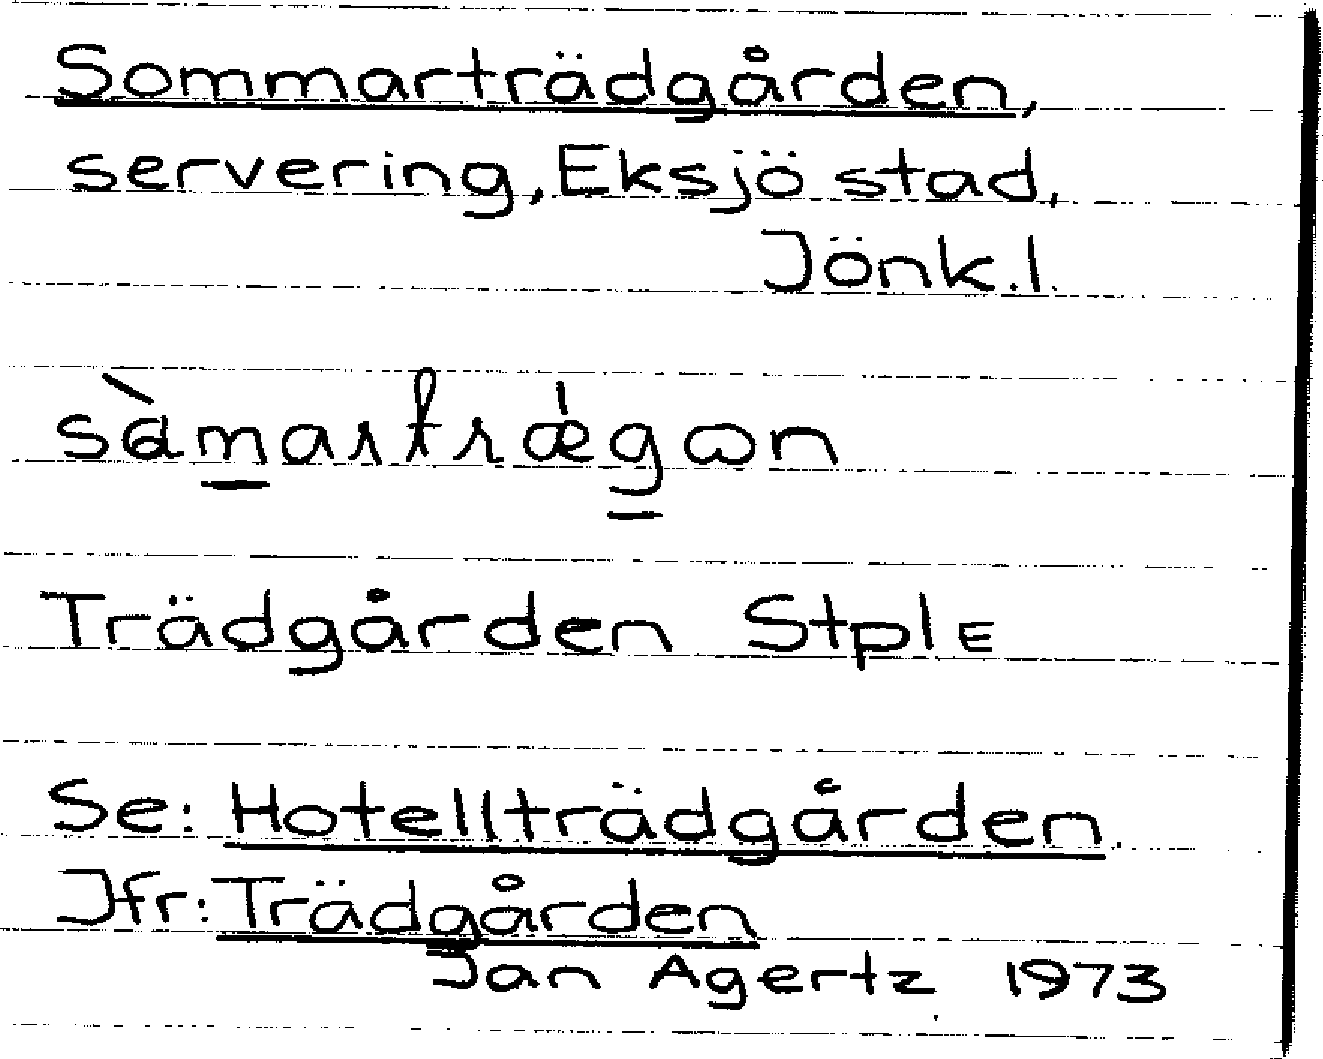 Sommarträdgården,
servering, Eksjö stad,
Jönk.l.
Trädgården StplE
Se: Hotellträdgården
Jfr: Trädgården
Jan Agertz 1973